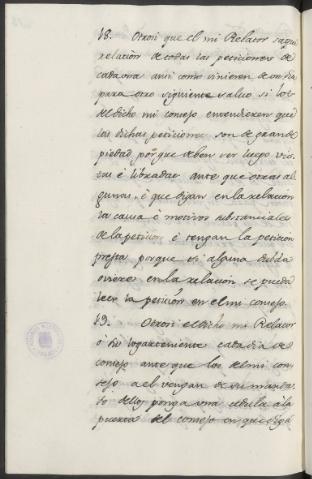 48. Otrosi que el mi Relator saque
relacion de todas las peticiones de
cada una ansi como vinieren de un dia
para otro siguiente salvo si los
del dicho mi consejo entendieren que
las dichas peticiones son de grande
piedad porque deben ser luego vis-
tas é libradas ante que otras al-
gunas, é que digan en la relacion
la causa é motivos substanciales
de la peticion é tengan la peticion
presta porque si alguna dubda
oviere en la relacion se pueda
leer la peticion en el mi consejo.
49. Otrosi el dicho mi Relator
ó su logarteniente cada dia de
consejo ante que los del mi con-
sejo a el vengan de su manda-
to dellos ponga una cedula á la
puerta del consejo en que diga